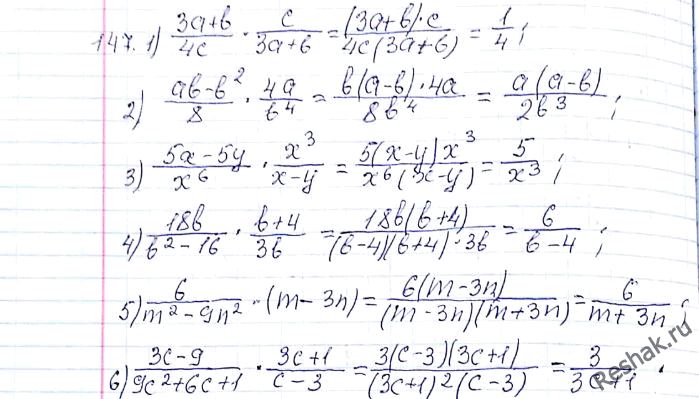 147. 1) (3a+b)/(4c) · c/(3a+b) = ((3a+b)·c)/(4c(3a+b)) = 1/4;
2) (ab-b²)/8 · 4a/b⁴ = (b(a-b)·4a)/(8b⁴) = (a(a-b))/(2b³);
3) (5x-5y)/x⁶ · x³/(x-y) = (5(x-y)x³)/(x⁶(x-y)) = 5/x³;
4) 18b/(b²-16) · (b+4)/(3b) = (18b(b+4))/((b-4)(b+4)·3b) = 6/(b-4);
5) 6/(m²-9n²) · (m-3n) = (6(m-3n))/((m-3n)(m+3n)) = 6/(m+3n);
6) (3c-9)/(9c²+6c+1) · (3c+1)/(c-3) = (3(c-3)(3c+1))/((3c+1)²(c-3)) = 3/(3c+1).
Reshak.ru